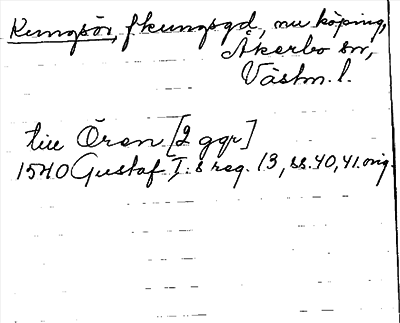 Kungsör, f kungsgd, nu köping,
Åkerbo sn,
Västm. l.
till Ören [2 ggr]
1540 Gustaf I:s reg. 13, ss. 40, 41. orig.